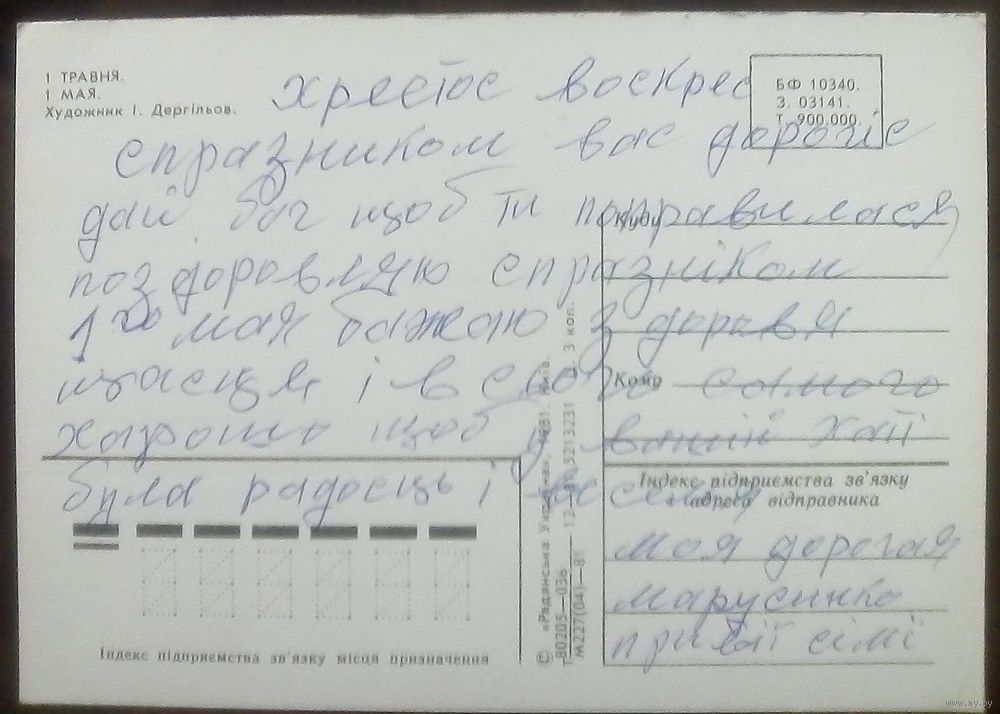 1 ТРАВНЯ.
1 МАЯ.
Художник І. Дергільов.
БФ 10340.
З. 03141.
Т. 900.000.
хрестос воскрес
спразником вас дорогіє
дай бог щоб ти поправилася
поздоровляю спразніком
1го мая бажаю здоровя
щастя і всього самого
хорошо щоб у вашій хаті
була радосць і веселия
Куди
Кому
Індекс підприємства зв'язку
і адреса відправника
моя дорогая
марусинка
привіт сімї
Індекс підприємства зв'язку місця призначення
© «Радянська Україна». 1981. Київ.
М227(04)—81
www.ay.by